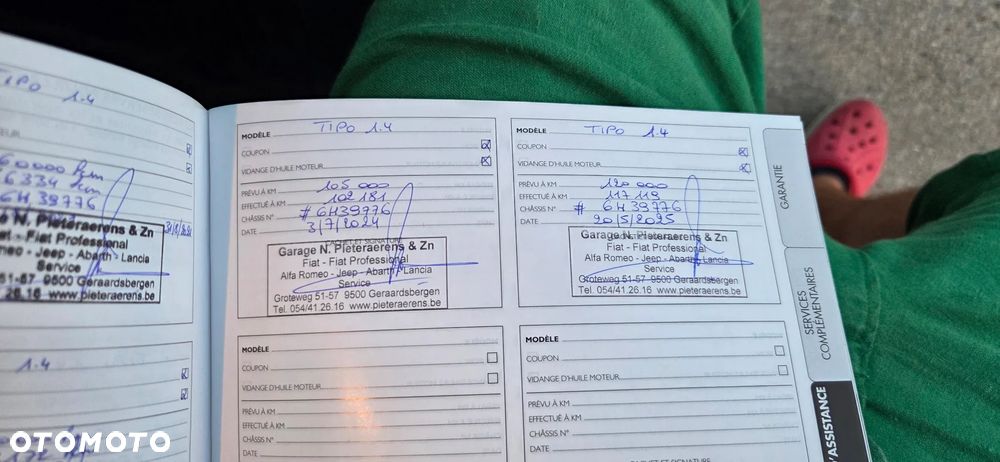 TIPO 1.4
60000 km
6334 km
6H39776
N. Pieteraerens & Zn
Fiat - Fiat Professional
Romeo - Jeep - Abarth - Lancia
Service
51-57 9500 Geraardsbergen
.26.16 www.pieteraerens.be
1.4
MODÈLE TIPO 1.4
COUPON
VIDANGE D'HUILE MOTEUR
PRÉVU À KM 105 000
EFFECTUÉ À KM 102 181
CHÂSSIS N° # 6H39776
DATE 3/7/2024
Garage N. Pieteraerens & Zn
Fiat - Fiat Professional
Alfa Romeo - Jeep - Abarth - Lancia
Service
Groteweg 51-57 9500 Geraardsbergen
Tel. 054/41.26.16 www.pieteraerens.be
MODÈLE TIPO 1.4
COUPON
VIDANGE D'HUILE MOTEUR
PRÉVU À KM 120 000
EFFECTUÉ À KM 117 119
CHÂSSIS N° # 6H39776
DATE 20/5/2025
Garage N. Pieteraerens & Zn
Fiat - Fiat Professional
Alfa Romeo - Jeep - Abarth - Lancia
Service
Groteweg 51-57 9500 Geraardsbergen
Tel. 054/41.26.16 www.pieteraerens.be
MODÈLE
COUPON
VIDANGE D'HUILE MOTEUR
PRÉVU À KM
EFFECTUÉ À KM
CHÂSSIS N°
DATE
MODÈLE
COUPON
VIDANGE D'HUILE MOTEUR
PRÉVU À KM
EFFECTUÉ À KM
CHÂSSIS N°
DATE
CACHET ET SIGNATURE
GARANTIE
SERVICES
COMPLÉMENTAIRES
D'ASSISTANCE
OTOMOTO